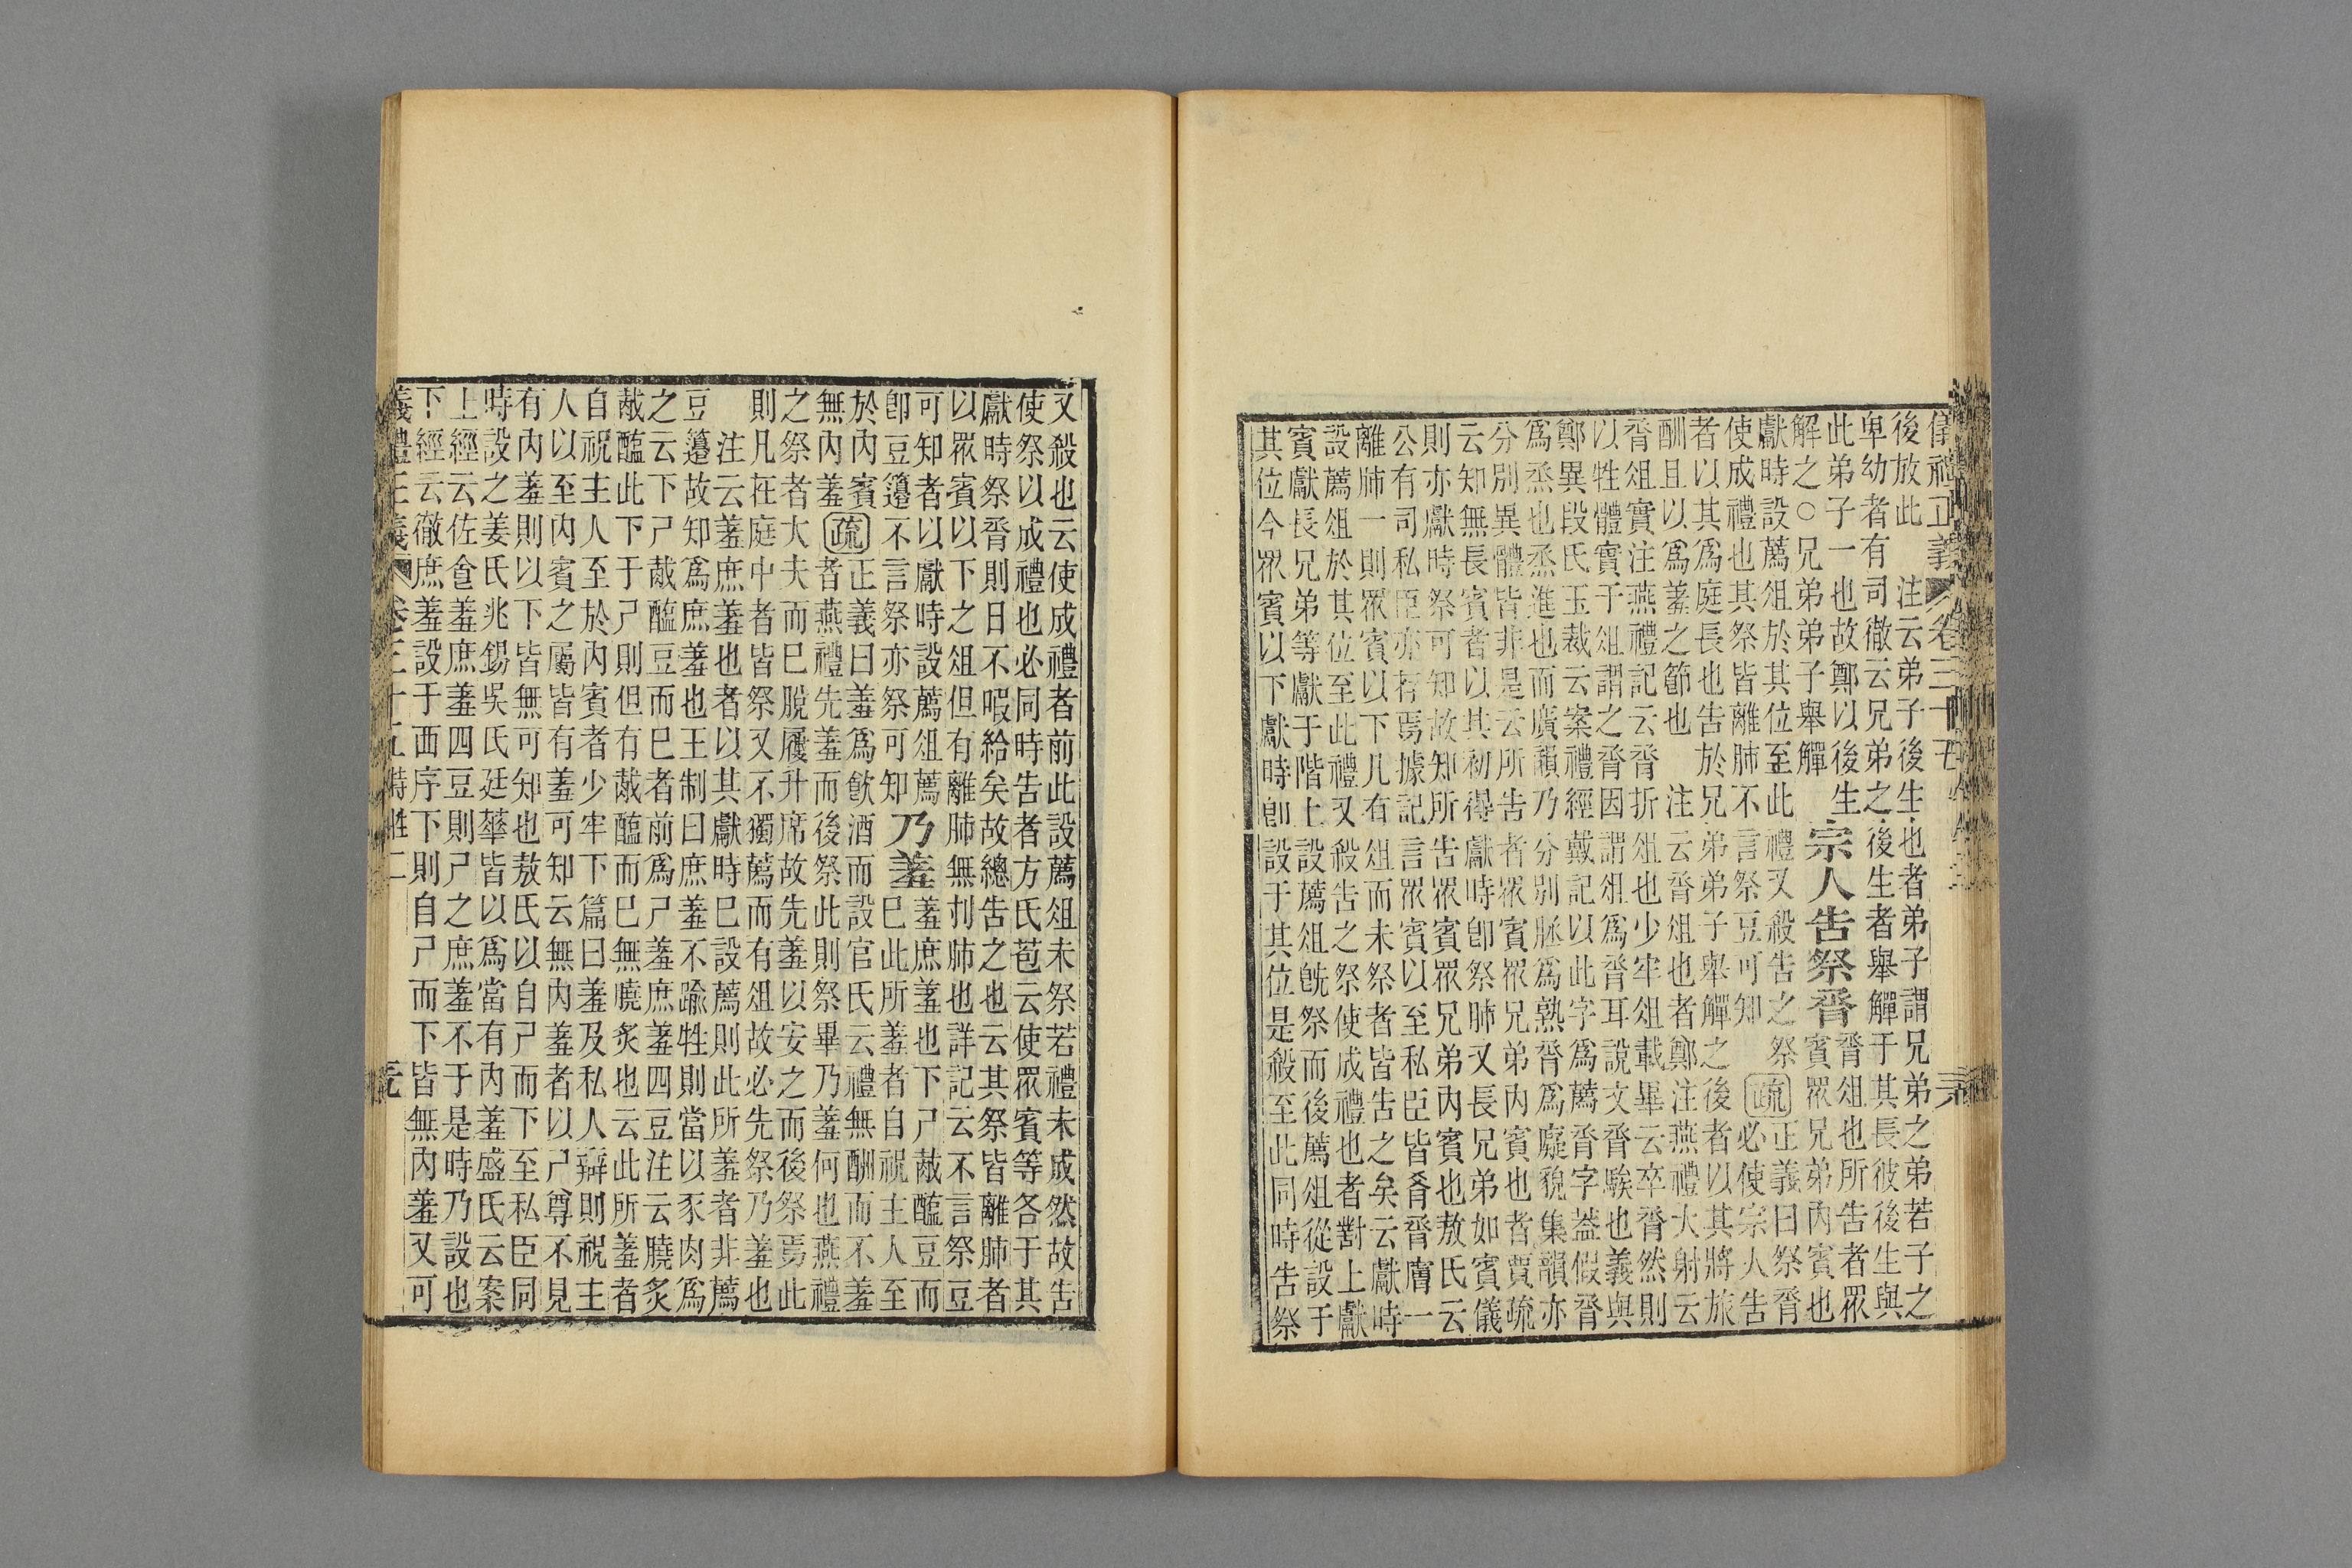 儀禮正義 卷三十五
後放此　注云弟子後生也者弟子謂兄弟之弟若子之
卑幼者有司徹云兄弟之後生者舉觶于其長彼後生與
此弟子一也故鄭以後生
解之○兄弟弟子舉觶
宗人告祭脀
脀俎也所告者眾
賓眾兄弟內賓也
獻時設薦俎於其位至此禮又殺告之祭
使成禮也其祭皆離肺不言祭豆可知
疏
正義曰祭脀
必使宗人告
者以其為庭長也告於兄弟弟子舉觶之後者以其將旅
酬且以為羞之節也　注云脀俎也者鄭注燕禮大射云
脀俎實注燕禮記云脀折俎也少牢俎載畢云卒脀然則
以牲體實于俎謂之脀因謂俎為脀耳說文脀騃也義與
鄭異段氏玉裁云案禮經戴記以此字為薦脀字蓋假脀
為烝也烝進也而廣韻乃分別脈為熟脀為癡貌集韻亦
分別異體皆非是云所告者眾賓眾兄弟內賓也者賈疏
云知無長賓者以其初得獻時即祭肺又長兄弟如賓儀
則亦獻時祭可知故知所告眾賓眾兄弟內賓也敖氏云
公有司私臣亦若焉據記言眾賓以至私臣皆肴脀膚一
離肺一則眾賓以下凡有俎而未祭者皆告之矣云獻時
設薦俎於其位至此禮又殺告之祭使成禮也者對上獻
賓獻長兄弟等獻于階上設薦俎既祭而後薦俎從設于
其位今眾賓以下獻時即設于其位是殺至此同時告祭
又殺也云使成禮者前此設薦俎未祭若禮未成然故告
使祭以成禮也必同時告者方氏苞云使眾賓等各于其
獻時祭脀則日不暇給矣故總告之也云其祭皆離肺者
以眾賓以下之俎但有離肺無刌肺也詳記云不言祭豆
可知者以獻時設薦俎薦
即豆籩不言祭亦祭可知
乃羞
羞庶羞也下尸胾醢豆而
已此所羞者自祝主人至
於內賓
無內羞
疏
正義曰羞為飲酒而設官氏云禮無酬而不羞
者燕禮先羞而後祭此則祭畢乃羞何也燕禮
之祭者大夫而已脫屨升席故先羞以安之而後祭焉此
則凡在庭中者皆祭又不獨薦而有俎故必先祭乃羞也
　注云羞庶羞也者以其獻時已設薦則此所羞者非薦
豆籩故知為庶羞也王制曰庶羞不踰牲則當以豕肉為
之云下尸胾醢豆而已者前為尸羞庶羞四豆注云膮炙
胾醢此下于尸則但有胾醢而已無膮炙也云此所羞者
自祝主人至於內賓者少牢下篇曰羞及私人辯則祝主
人以至內賓之屬皆有羞可知云無內羞者以尸尊不見
有內羞則以下皆無可知也敖氏以自尸而下至私臣同
時設之姜氏兆錫吳氏廷華皆以為當有內羞盛氏云案
上經云佐食羞庶羞四豆則尸之庶羞不于是時乃設也
下經云徹庶羞設于西序下則自尸而下皆無內羞又可
儀禮正義 卷三十五 特牲二